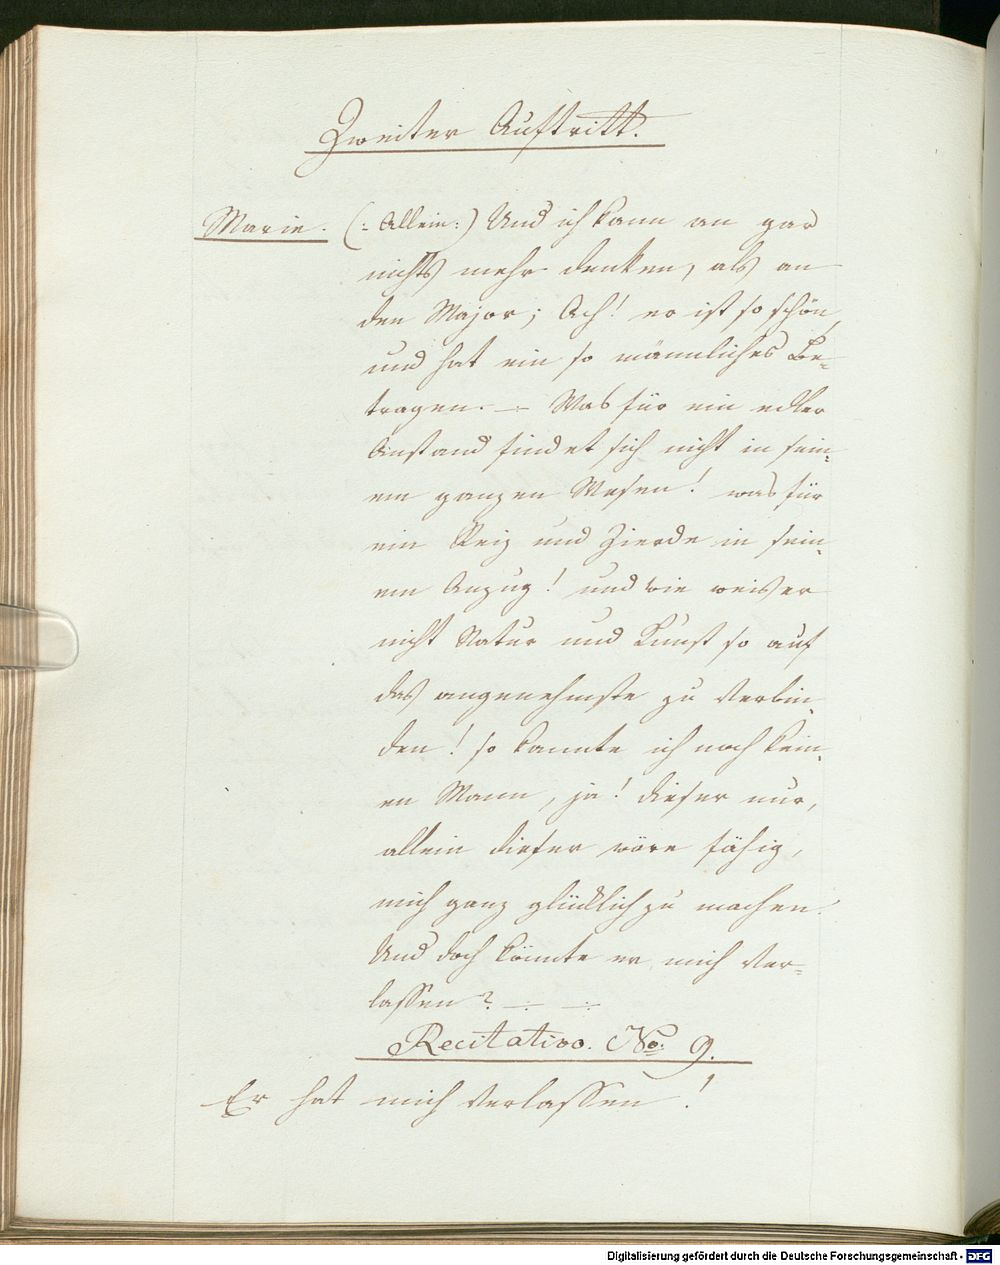 Zweiter Auftritt.
Marie. (: Allein :) Und ich kann an gar
nichts mehr denken, als an
den Major; Ach! er ist so schön,
und hat ein so männliches Be-
tragen. — Was für ein edler
Anstand findet sich nicht in sein-
em ganzen Wesen! was für
ein Reiz und Zierde in sein-
em Anzug! und wie weis er
nicht Natur und Kunst so auf
das angenehmste zu verbin-
den! so kannte ich noch kein-
en Mann, ja! dieser nur,
allein dieser wäre fähig,
mich ganz glücklich zu machen.
Und doch könnte er mich ver-
lassen? — —
Recitativo. No. 9.
Er hat mich verlassen!
Digitalisierung gefördert durch die Deutsche Forschungsgemeinschaft - DFG